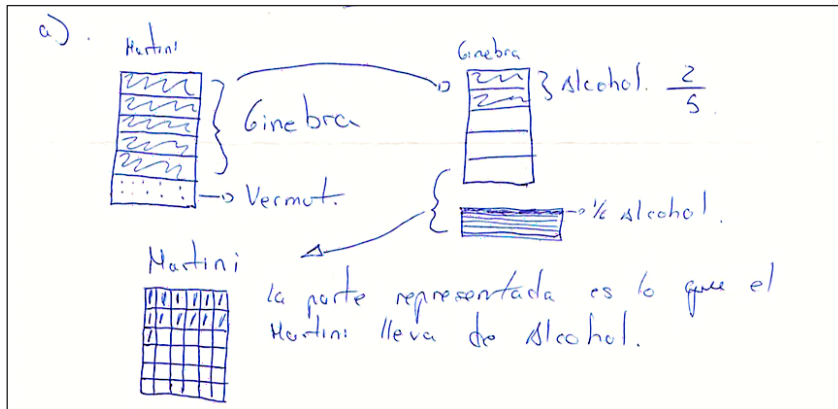 a).
Martini
Ginebra
Alcohol. 2/5
Ginebra
Vermut.
1/6 Alcohol.
Martini
la parte representada es lo que el
Martini lleva de Alcohol.